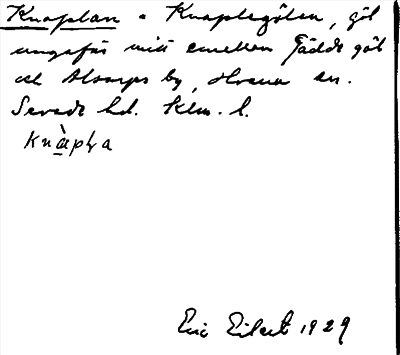 Knaplan = Knaplegölen, göl
ungefär mitt emellan Gädde göl
och Alsarps by, Hvena sn.
Sevede hd. Klm. l.
knàpḷa
Eric Eilert 1929